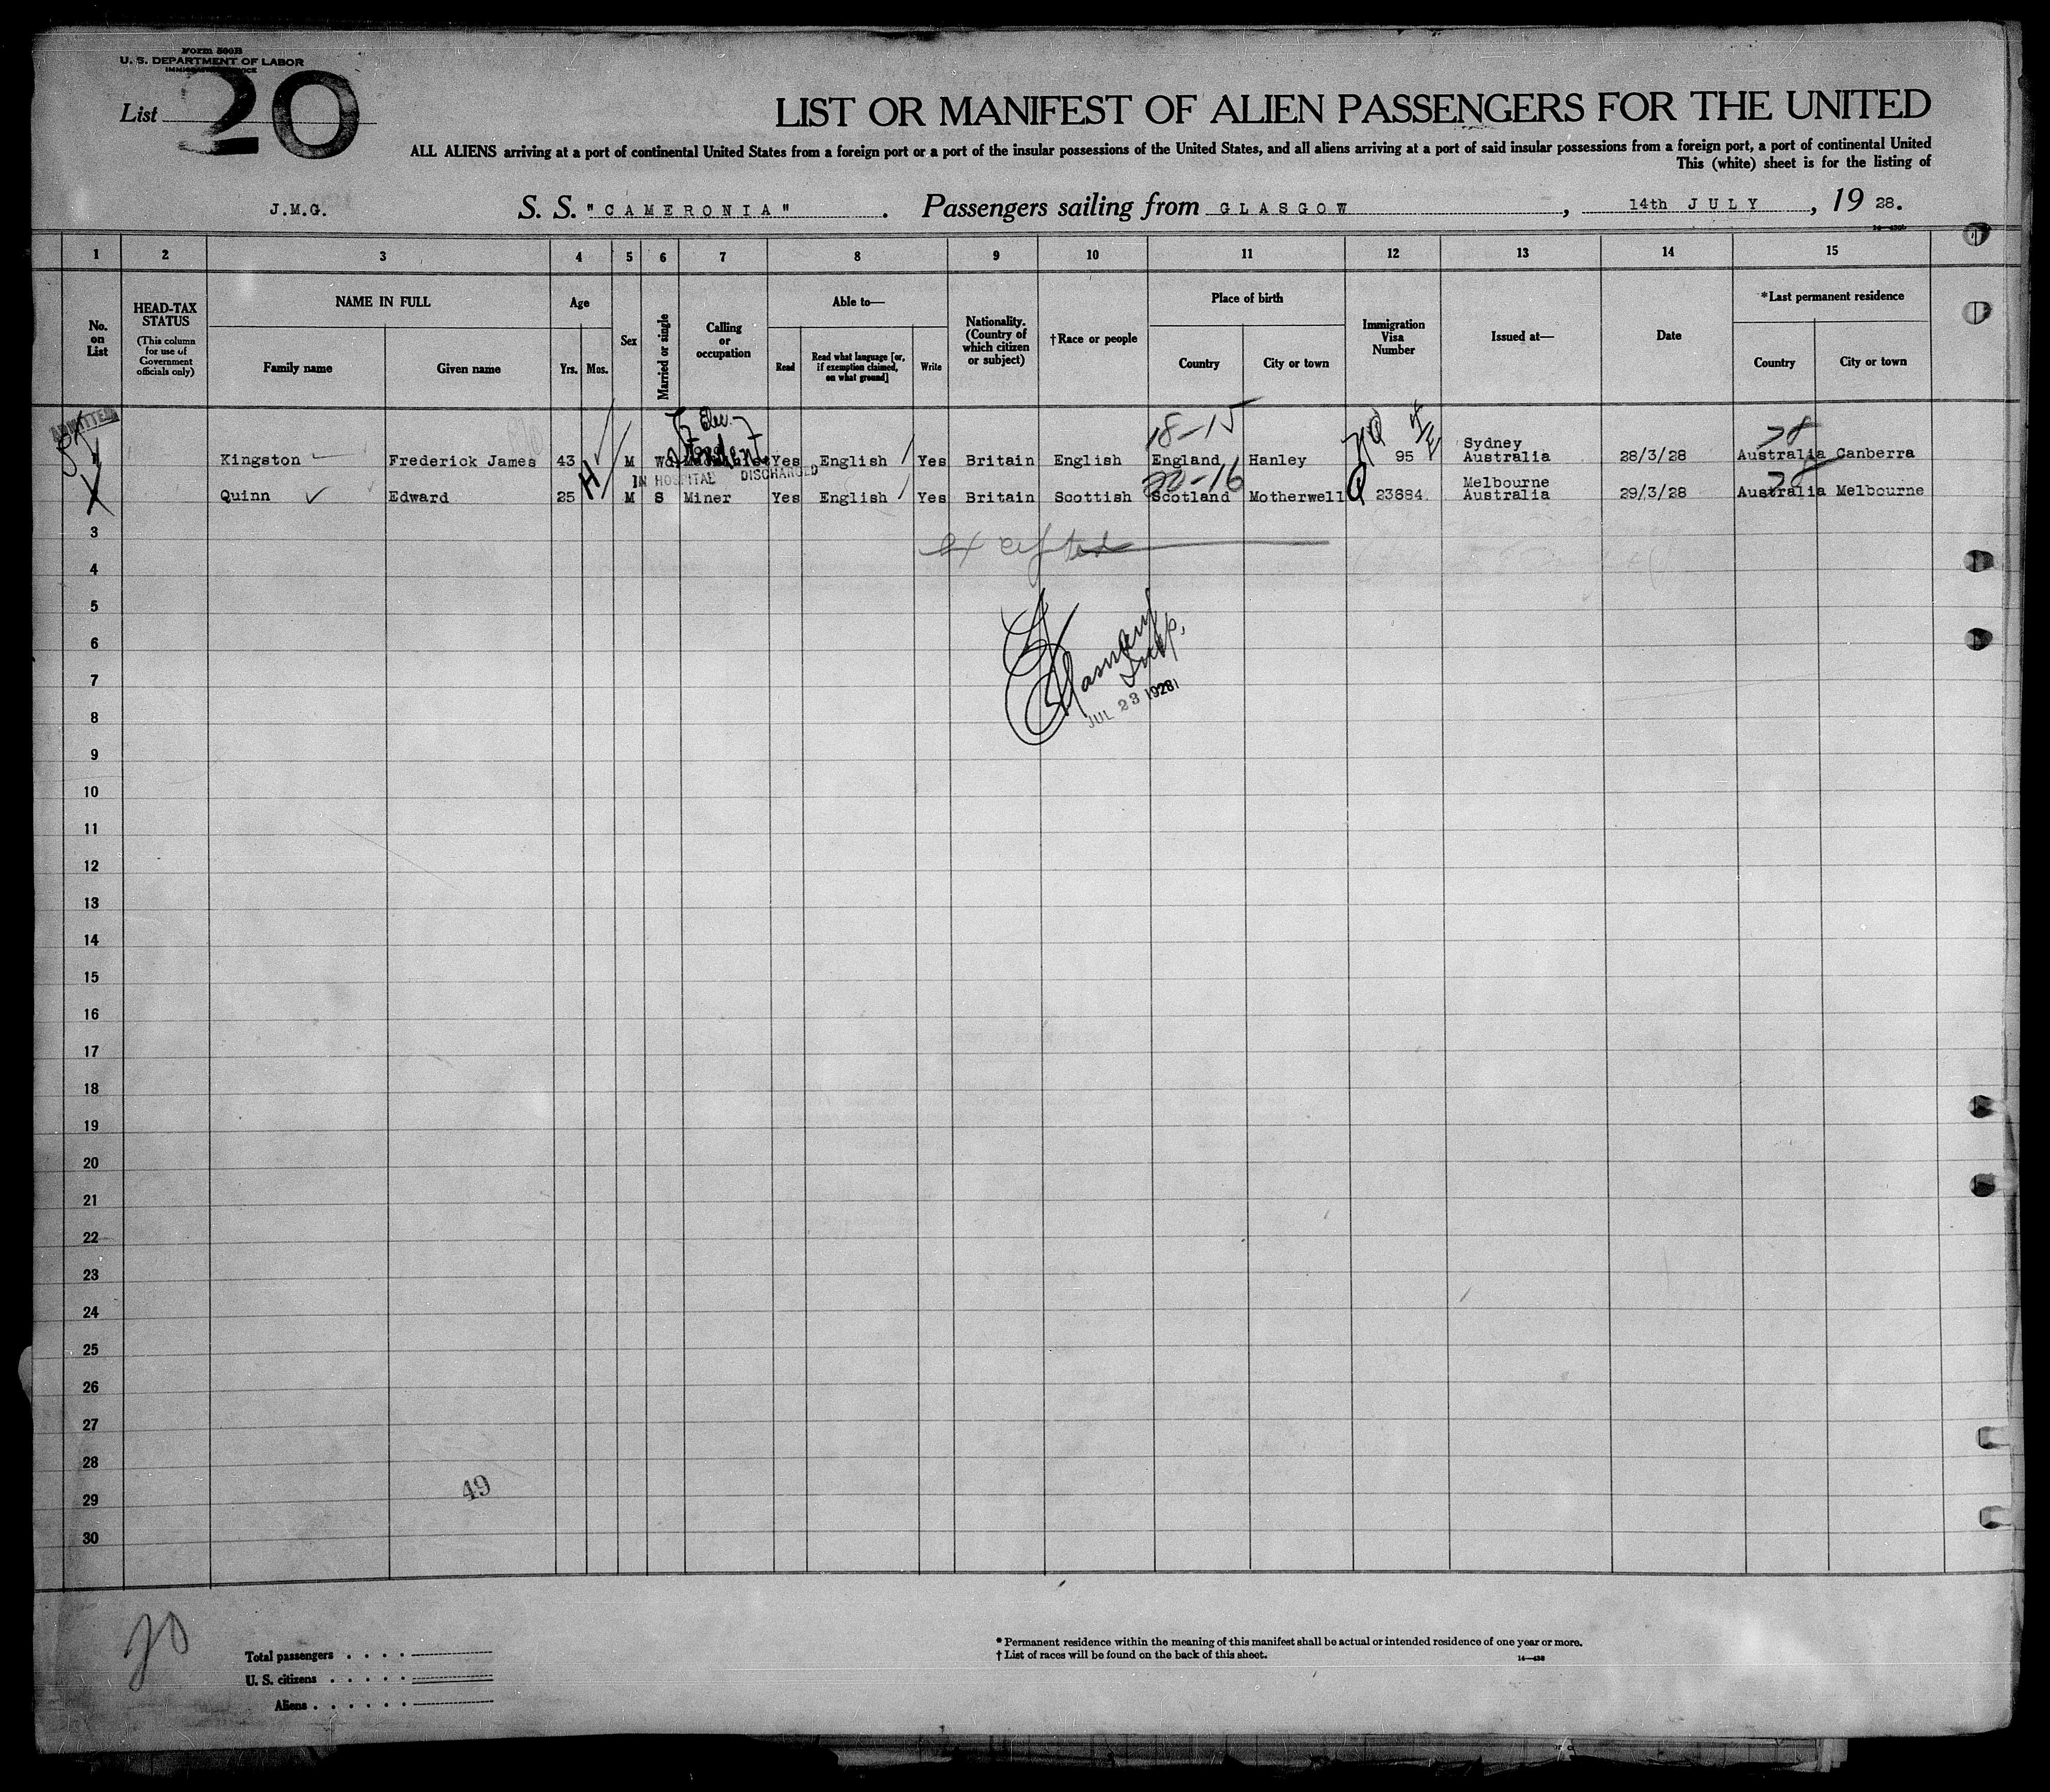 Form 500B
U. S. DEPARTMENT OF LABOR
IMMIGRATION SERVICE
List 20
LIST OR MANIFEST OF ALIEN PASSENGERS FOR THE UNITED
ALL ALIENS arriving at a port of continental United States from a foreign port or a port of the insular possessions of the United States, and all aliens arriving at a port of said insular possessions from a foreign port, a port of continental United
This (white) sheet is for the listing of
J.M.G. S. S. "CAMERONIA". Passengers sailing from GLASGOW, 14th JULY, 19 28.
1 2 3 4 5 6 7 8 9 10 11 12 13 14 15
No. on List
HEAD-TAX STATUS (This column for use of Government officials only)
NAME IN FULL
Family name Given name
Age
Yrs. Mos.
Sex
Married or single
Calling or occupation
Able to—
Read Read what language [or, if exemption claimed, on what ground] Write
Nationality. (Country of which citizen or subject)
†Race or people
Place of birth
Country City or town
Immigration Visa Number
Issued at—
Date
*Last permanent residence
Country City or town
ADMITTED
Elec. 18-15 28
Kingston Frederick James 43 M Wd Yes English Yes Britain English England Hanley 95 Sydney Australia 28/3/28 Australia Canberra
IN HOSPITAL DISCHARGED
20-16 28
Quinn Edward 25 H M S Miner Yes English Yes Britain Scottish Scotland Motherwell Q 23684 Melbourne Australia 29/3/28 Australia Melbourne
3
4
5
6
Insp.
7
JUL 23 1928
8
9
10
11
12
13
14
15
16
17
18
19
20
21
22
23
24
25
26
27
28
29
49
30
20
Total passengers
U. S. citizens
Aliens
* Permanent residence within the meaning of this manifest shall be actual or intended residence of one year or more.
† List of races will be found on the back of this sheet.
14—430